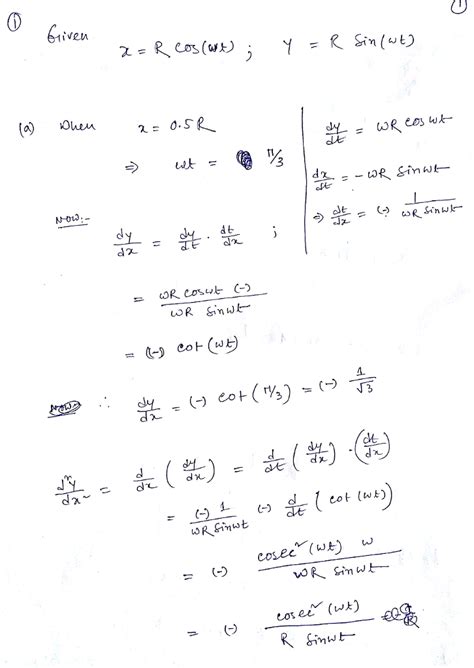 ① 1
Given x = R cos(wt) ; y = R Sin(wt)
(a) When x = 0.5R
⇒ wt = π/3
dy/dt = wR cos wt
dx/dt = -wR Sinwt
⇒ dt/dx = (-) 1/(wR Sinwt)
Now:- dy/dx = dy/dt · dt/dx ;
= wR coswt (-) / wR Sinwt
= (-) cot(wt)
∴ dy/dx = (-) cot(π/3) = (-) 1/√3
d²y/dx² = d/dx (dy/dx) = d/dt (dy/dx) · (dt/dx)
= (-) 1/(wR Sinwt) (-) d/dt { cot(wt)}
= (-) cosec²(wt) w / wR Sinwt
= (-) cosec²(wt) / R Sinwt